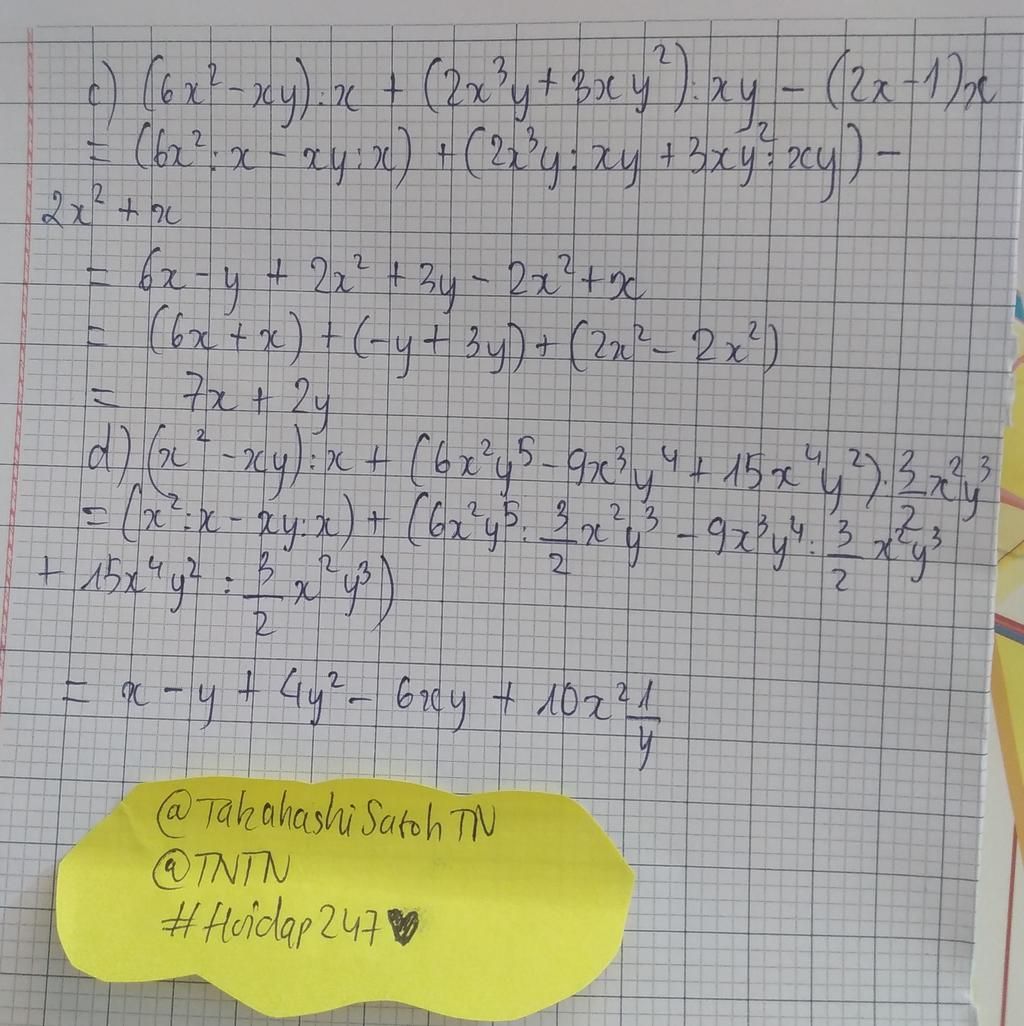 c) (6x² - xy) : x + (2x³y + 3xy²) : xy - (2x - 1)x
= (6x² : x - xy : x) + (2x³y : xy + 3xy² : xy) -
2x² + x
= 6x - y + 2x² + 3y - 2x² + x
= (6x + x) + (-y + 3y) + (2x² - 2x²)
= 7x + 2y
d) (x² - xy) : x + (6x²y⁵ - 9x³y⁴ + 15x⁴y²) : 3/2 x²y³
= (x² : x - xy : x) + (6x²y⁵ : 3/2 x²y³ - 9x³y⁴ : 3/2 x²y³
+ 15x⁴y² : 3/2 x²y³)
= x - y + 4y² - 6xy + 10x² 1/y
@TakahashiSatohTN
@TNTN
#Hoidap247♥